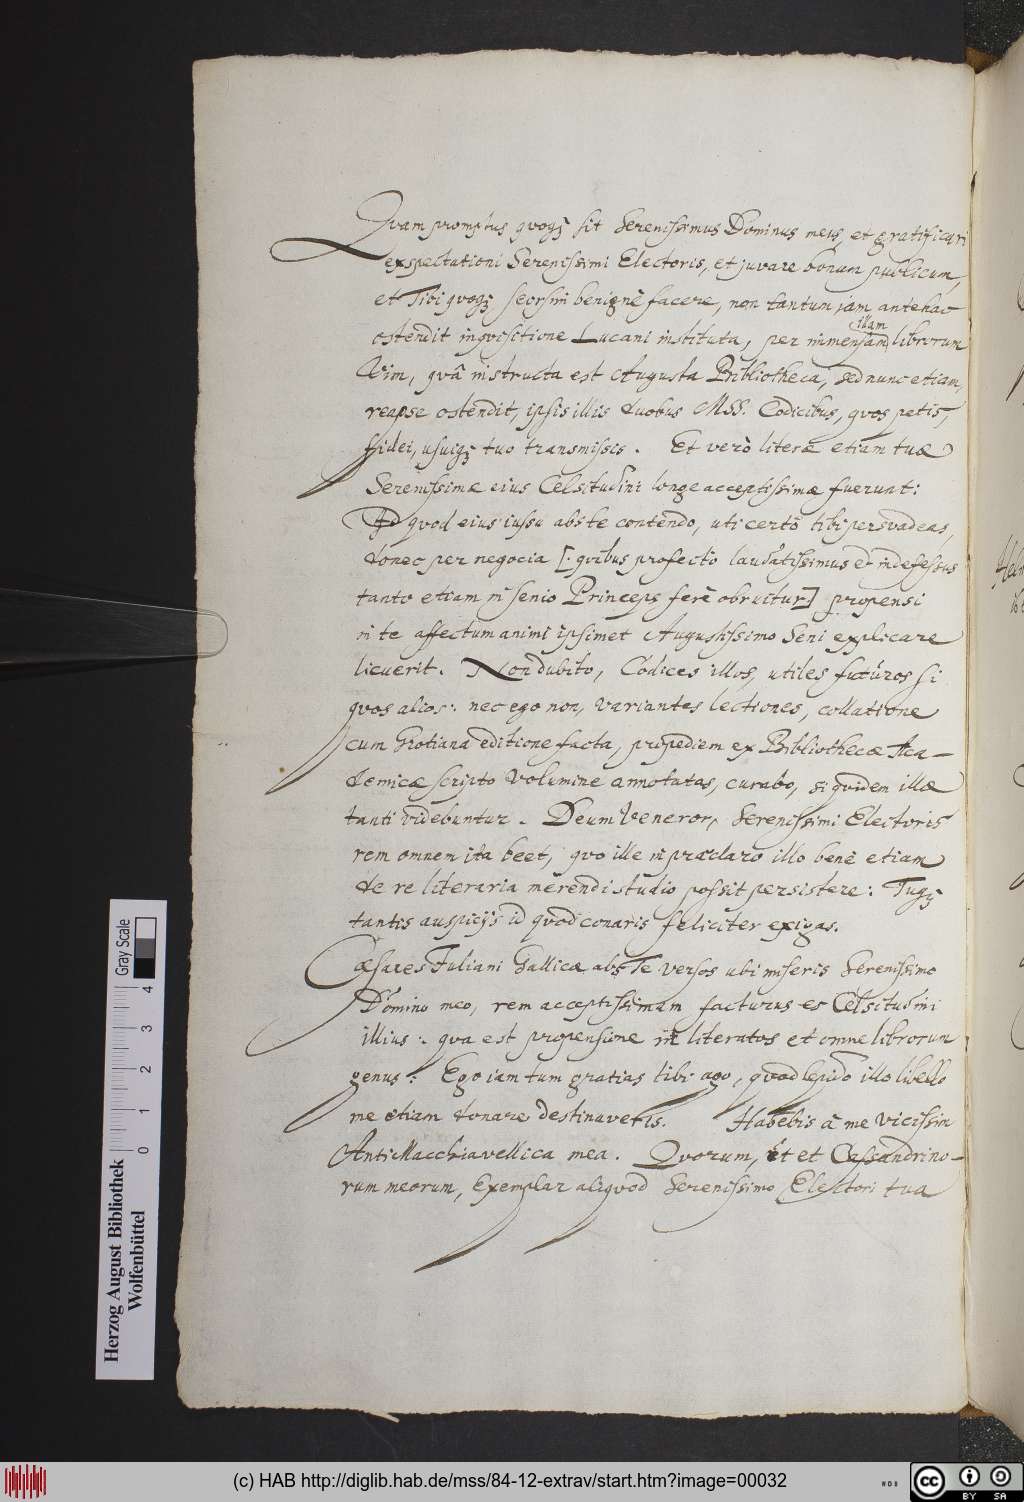 Quam promptus quoq; sit Serenissimus Dominus meus, et gratificari
exspectationi Serenissimi Electoris, et juvare bonum publicum,
et Tibi quoq; seorsim benignè facere, non tantum jam antehac
ostendit inquisitione Lucani instituta, per immensam illam librorum
Vim, quâ instructa est Augusta Bibliotheca, sed nunc etiam,
reapse ostendit, ipsis illis duobus MSS. Codicibus, quos petis,
fidei, usuiq; tuo transmissis. Et verò literæ etiam tuæ
Serenissimæ eius Celsitudini longe acceptissimæ fuerunt:
Id quod eius iussu abs te contendo, uti certò tibi persvadeas,
donec per negocia [: quibus profectò laudatissimus et indefessus
tanto etiam in senio Princeps ferè obruitur] propensi
in te affectum animi ipsimet Augustissimo Seni explicare
licuerit. Non dubito, Codices illos, utiles futuros si
quos alios: nec ego non, variantes lectiones, collatione
cum Grotiana editione facta, propediem ex Bibliothecæ Aca-
demicæ scripto Volumine annotatas, curabo, siquidem illæ
tanti videbuntur. Deum Veneror, Serenissimi Electoris
rem omnem ita beet, quo ille in præclaro illo benè etiam
de re literaria merendi studio possit persistere: Tuq;
tantis auspicijs id quod conaris feliciter exigas.
Cæsares Juliani Gallicæ abs Te versos ubi miseris Serenissimo
Domino meo, rem acceptissimam facturus es Celsitudini
illius: qua est propensione in literatos et omne librorum
genus: Ego iam tum gratias tibi ago, quod lepido illo libello
me etiam donare destinaveris. Habebis à me vicissim
AntiMacchiavellica mea. Quorum, ut et Cassandrino-
rum meorum, Exemplar aliquod Serenissimo Electori tua
Herzog August Bibliothek
Wolfenbüttel
Gray Scale
0 1 2 3 4
(c) HAB http://diglib.hab.de/mss/84-12-extrav/start.htm?image=00032
CC BY SA